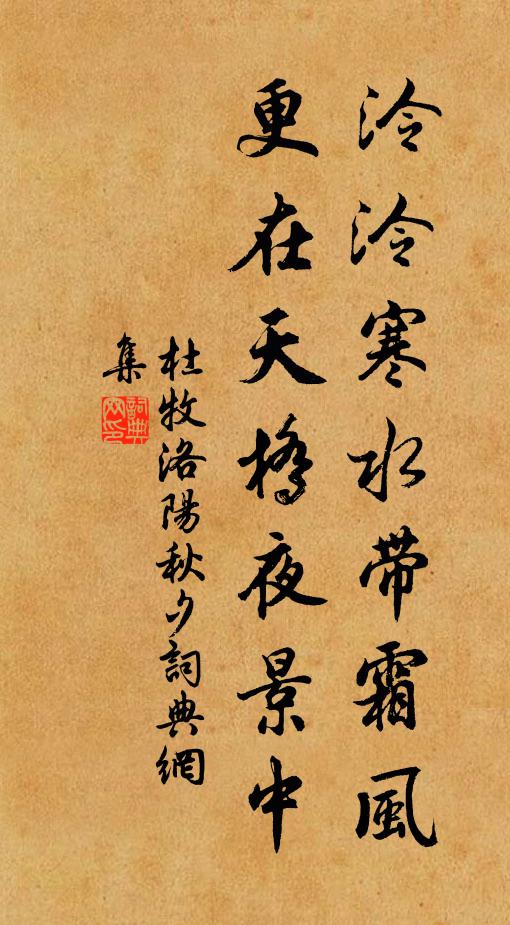 泠泠寒水带霜風
更在天橋夜景中
杜牧洛陽秋夕詞典網
集
詞典網印